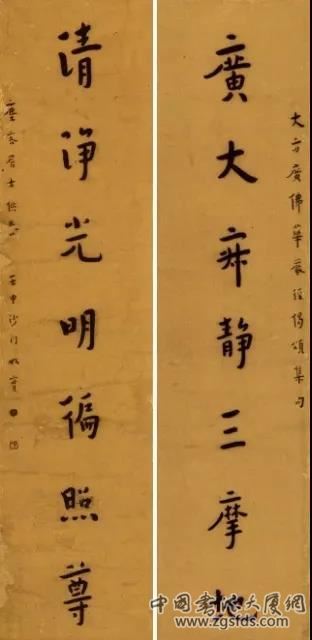 大方廣佛華嚴經偈頌集句
廣大寂靜三摩地
清淨光明偏照尊
居士供養 壬申沙門
中国书法大厦網
www.zgsfds.com